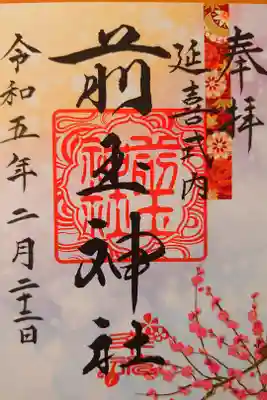 奉拝
延喜式内
前玉神社
令和五年二月二十二日
前玉神社